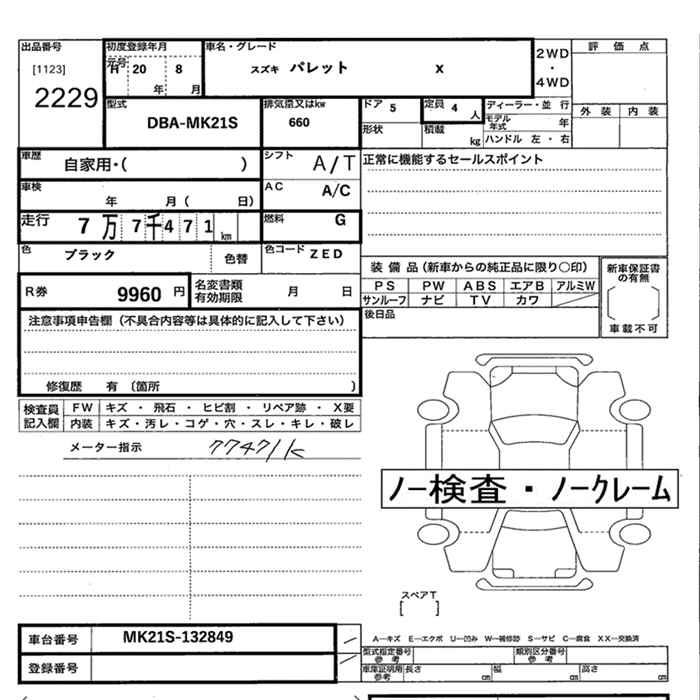 出品番号
[1123]
2229
初度登録年月
元号
H 20 8
年 月
車名・グレード
スズキ パレット X
2WD
・
4WD
評 価 点
外 装 内 装
型式
DBA-MK21S
排気量又はkw
660
ドア 5
定員 4 人
形状
積載 kg
ディーラー・並 行
モデル
年式 年
ハンドル 左 ・ 右
車歴
自家用・( )
シフト A/T
正常に機能するセールスポイント
車検
年 月 ( 日)
AC A/C
走行 7 万 7 千 4 7 1 km
燃料 G
色 ブラック 色替
色コード ZED
R券 9960 円
名変書類
有効期限 月 日
装 備 品 (新車からの純正品に限り○印)
PS PW ABS エアB アルミW
サンルーフ ナビ TV カワ
後日品
新車保証書
の有無
車載不可
注意事項申告欄 (不具合内容等は具体的に記入して下さい)
修復歴 有 〔箇所 〕
検査員
記入欄
FW キズ ・ 飛石 ・ ヒビ割 ・ リペア跡 ・ X要
内装 キズ・汚レ・コゲ・穴・スレ・キレ・破レ
メーター指示 77471k
ノー検査・ノークレーム
スペアT
[ ]
車台番号 MK21S-132849
登録番号
A―キズ E―エクボ U―凹み W―補修跡 S―サビ C―腐食 XX―交換済
型式指定番号
参 考
類別区分番号
参 考
車庫証明用
参 考
長さ cm 幅 cm 高さ cm